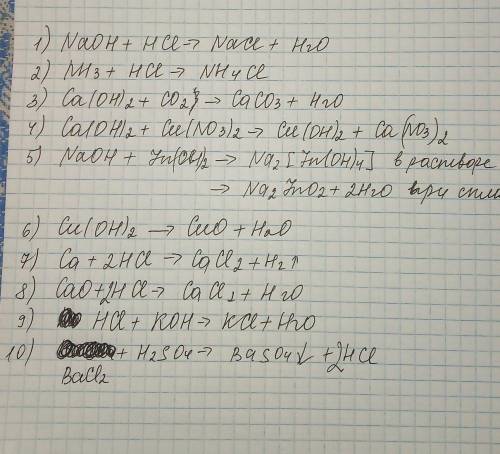 1) NaOH + HCl → NaCl + H2O
2) NH3 + HCl → NH4Cl
3) Ca(OH)2 + CO2} → CaCO3 + H2O
4) Ca(OH)2 + Cu(NO3)2 → Cu(OH)2 + Ca(NO3)2
5) NaOH + Zn(OH)2 → Na2[Zn(OH)4] в растворе
→ Na2ZnO2 + 2H2O при спла
6) Cu(OH)2 → CuO + H2O
7) Ca + 2HCl → CaCl2 + H2↑
8) CaO + 2HCl → CaCl2 + H2O
9) HCl + KOH → KCl + H2O
10) + H2SO4 → BaSO4↓ + 2HCl
BaCl2